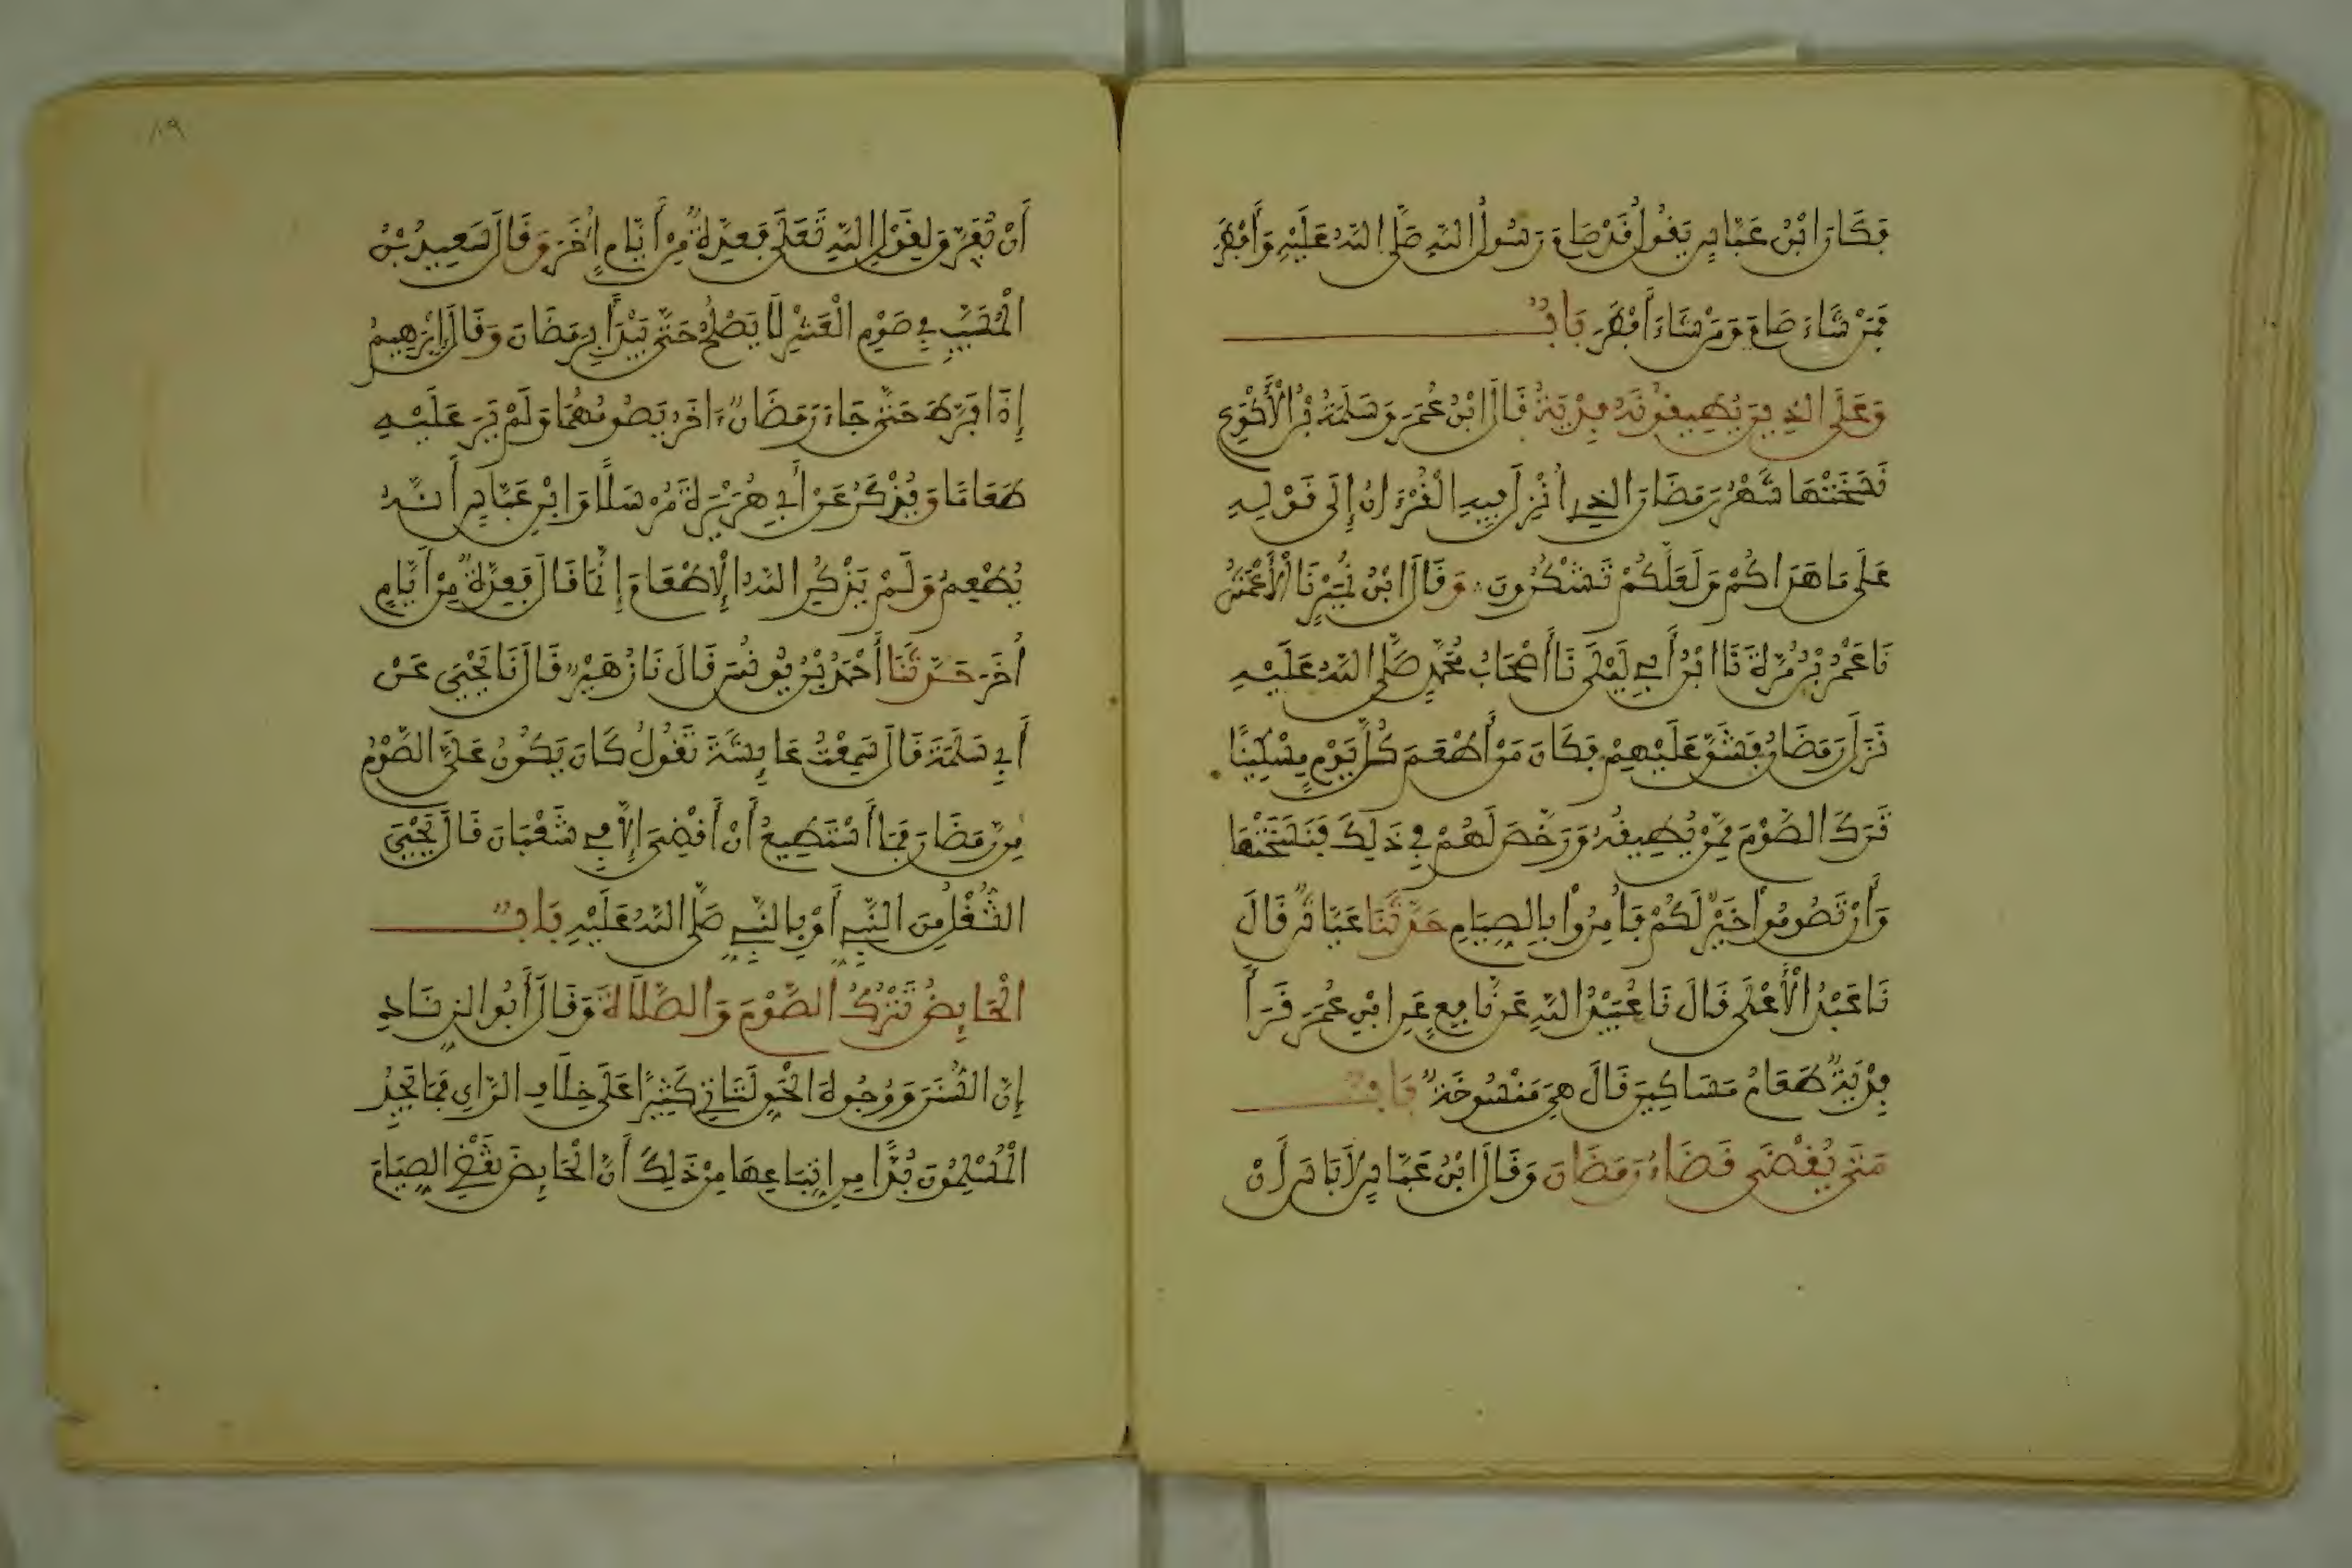 فَكَانَ ابْنُ عَبَّاسٍ يَقُولُ قَدْ صَامَ رَسُولُ اللَّهِ صَلَّى اللَّهُ عَلَيْهِ وَأَفْطَرَ
فَمَنْ شَاءَ صَامَ وَمَنْ شَاءَ أَفْطَرَ بَابٌ
وَعَلَى الذِينَ يُطِيقُونَهُ فِدْيَةٌ قَالَ ابْنُ عُمَرَ وَسَلَمَةُ بْنُ الْأَكْوَعِ
نَسَخَتْهَا شَهْرُ رَمَضَانَ الذِي أُنْزِلَ فِيهِ الْقُرْءَانُ إِلَى قَوْلِهِ
عَلَى مَا هَدَاكُمْ وَلَعَلَّكُمْ تَشْكُرُونَ وَقَالَ ابْنُ نُمَيْرٍ نَا الْأَعْمَشُ
نَا عَمْرُو بْنُ مُرَّةَ نَا ابْنُ أَبِي لَيْلَى نَا أَصْحَابُ مُحَمَّدٍ صَلَّى اللَّهُ عَلَيْهِ
نَزَلَ رَمَضَانُ فَشَقَّ عَلَيْهِمْ فَكَانَ مَنْ أَطْعَمَ كُلَّ يَوْمٍ مِسْكِينًا
تَرَكَ الصَّوْمَ مِمَّنْ يُطِيقُهُ وَرَخَّصَ لَهُمْ فِي ذَلِكَ فَنَسَخَتْهَا
وَأَنْ تَصُومُوا خَيْرٌ لَكُمْ فَأُمِرُوا بِالصِّيَامِ حَدَّثَنَا عَيَّاشٌ قَالَ
نَا عَبْدُ الْأَعْلَى قَالَ نَا عُبَيْدُ اللَّهِ عَنْ نَافِعٍ عَنِ ابْنِ عُمَرَ قَرَأَ
فِدْيَةٌ طَعَامُ مَسَاكِينَ قَالَ هِيَ مَنْسُوخَةٌ بَابٌ
مَتَى يُقْضَى قَضَاءُ رَمَضَانَ وَقَالَ ابْنُ عَبَّاسٍ لَا بَأسَ أَنْ
أَنْ يُفَرِّقَ لِقَوْلِ اللَّهِ تَعَلَى فَعِدَّةٌ مِنْ أَيَّامٍ أُخَرَ وَقَالَ سَعِيدُ بْنُ
الْمُسَيِّبِ فِي صَوْمِ الْعَشْرِ لَا يَصْلُحُ حَتَّى يَبْدَأَ بِرَمَضَانَ وَقَالَ إِبْرَهِيمُ
إِذَا فَرَّطَ حَتَّى جَاءَ رَمَضَانٌ ءَاخَرُ يَصُومُهُمَا وَلَمْ يَرَ عَلَيْهِ
طَعَامًا وَيُذْكَرُ عَنْ أَبِي هُرَيْرَةَ مُرْسَلًا وَابْنِ عَبَّاسٍ أَنَّهُ
يُطْعِمُ وَلَمْ يَذْكُرِ اللَّهُ الْإِطْعَامَ إِنَّمَا قَالَ فَعِدَّةٌ مِنْ أَيَّامٍ
أُخَرَ حَدَّثَنَا أَحْمَدُ بْنُ يُونُسَ قَالَ نَا زُهَيْرٌ قَالَ نَا يَحْيَى عَنْ
أَبِي سَلَمَةَ قَالَ سَمِعْتُ عَايِشَةَ تَقُولُ كَانَ يَكُونُ عَلَيَّ الصَّوْمُ
مِن رَمَضَانَ فَمَا أَسْتَطِيعُ أَنْ أَقْضِيَ إِلَّا فِي شَعْبَانَ قَالَ يَحْيَى
الشُّغْلُ مِنَ النَّبِيِّ أَوْ بِالنَّبِيِّ صَلَّى اللَّهُ عَلَيْهِ بَابٌ
الْحَايِضُ تَتْرُكُ الصَّوْمَ وَالصَّلَاةَ وَقَالَ أَبُو الزِّنَادِ
إِنَّ السُّنَنَ وَوُجُوهَ الْحَقِّ لَتَأتِي كَثِيرًا عَلَى خِلَافِ الرَّايِ فَمَا يَجِدُ
الْمُسْلِمُونَ بُدًّا مِنِ اتِّبَاعِهَا مِنْ ذَلِكَ أَنَّ الْحَايِضَ تَقْضِي الصِّيَامَ